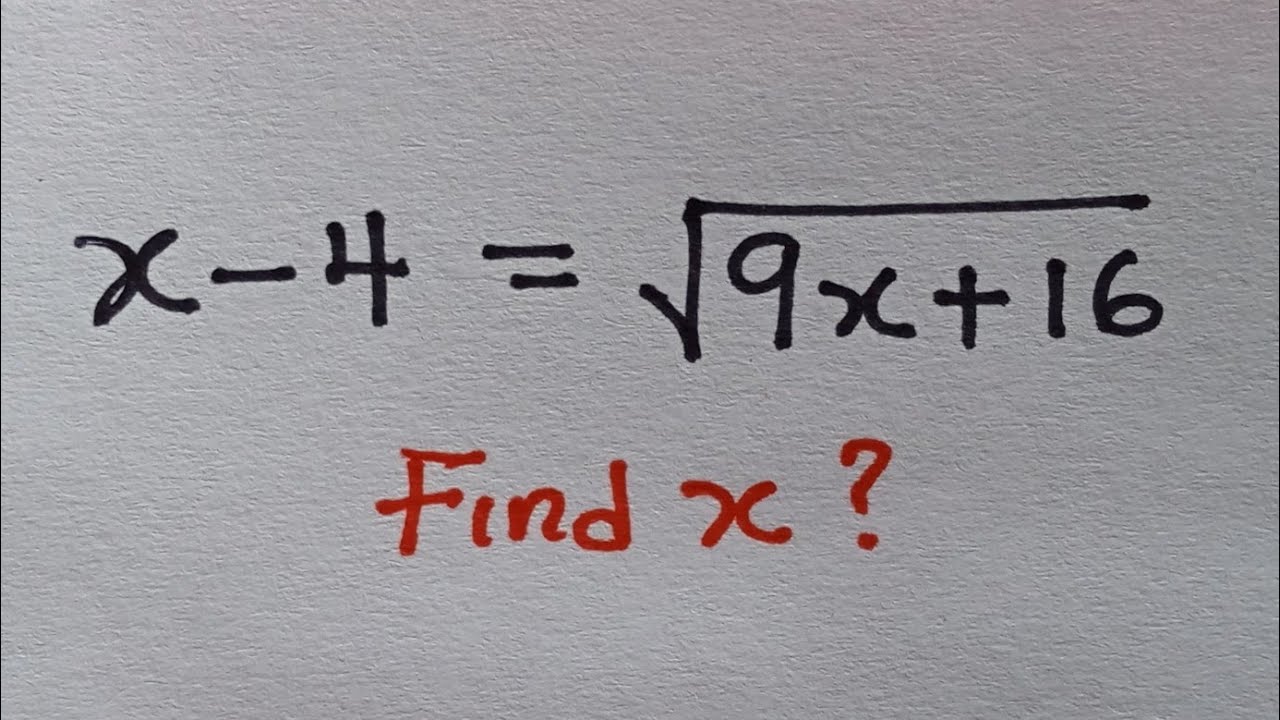 x-4 = √9x+16
Find x?